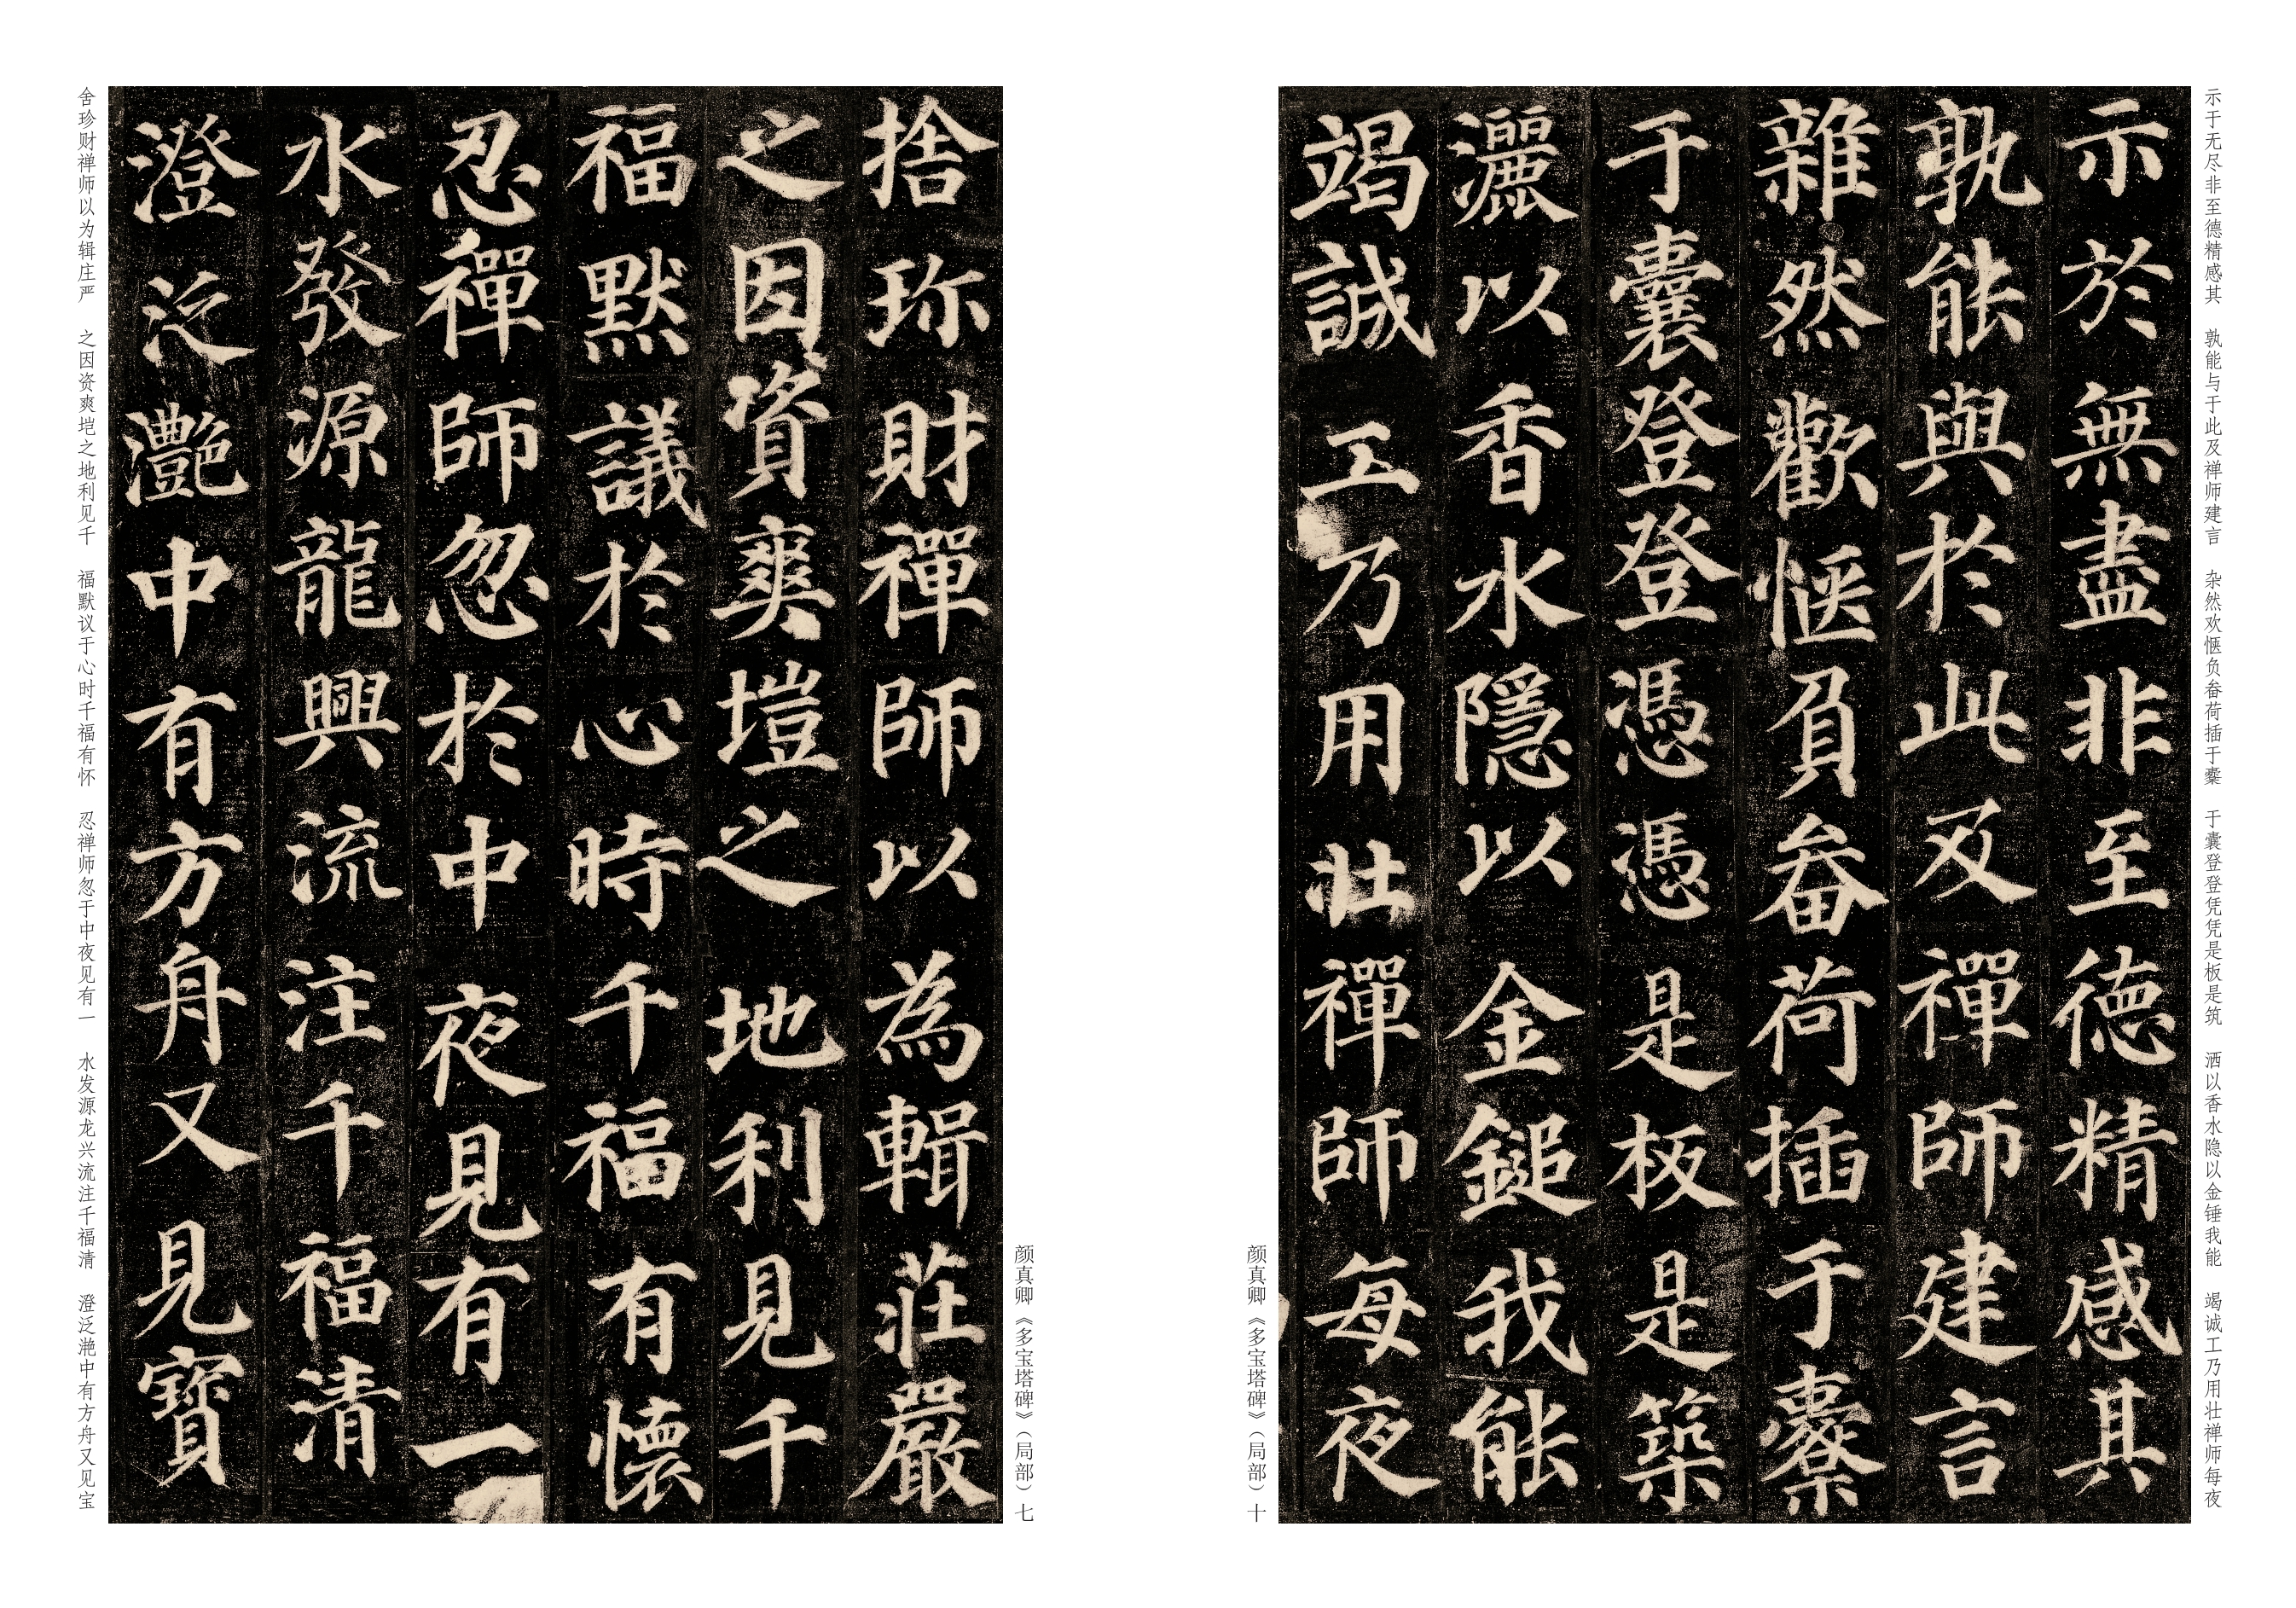 示於無盡非至德精感其
孰能與於此及禪師建言
雜然歡愜負畚荷插于橐
于囊登登憑憑是板是築
灑以香水隱以金鎚我能
竭誠工乃用壯禪師每夜
示于无尽非至德精感其 孰能与于此及禅师建言 杂然欢惬负畚荷插于橐 于囊登登凭凭是板是筑 洒以香水隐以金锤我能 竭诚工乃用壮禅师每夜
颜真卿《多宝塔碑》（局部）十
捨珎財禪師以為輯莊嚴
之因資爽塏之地利見千
福默議於心時千福有懷
忍禪師忽於中夜見有一
水發源龍興流注千福清
澄泛灧中有方舟又見寶
舍珍财禅师以为辑庄严 之因资爽垲之地利见千 福默议于心时千福有怀 忍禅师忽于中夜见有一 水发源龙兴流注千福清 澄泛滟中有方舟又见宝
颜真卿《多宝塔碑》（局部）七